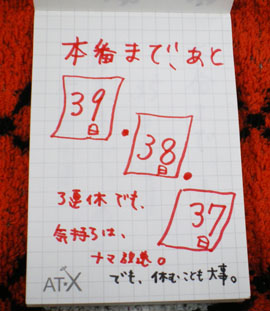 本番まで、あと
39日.
38日.
37日
3連休でも、
気持ちは、
ナマ段差。
でも、休むことも大事。
AT-X